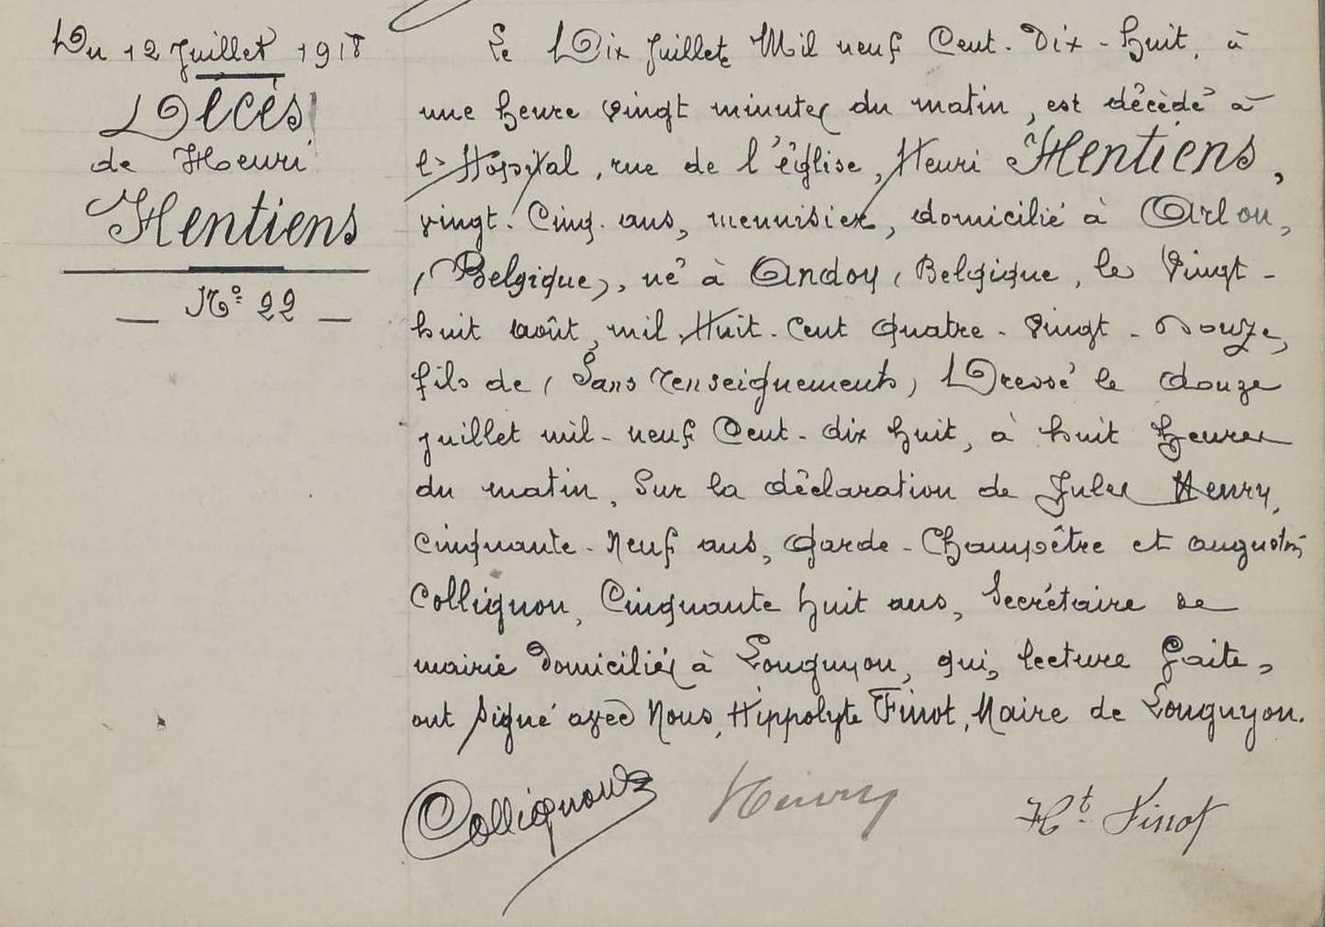 Du 12 Juillet 1918
Décès
de Henri
Hentiens
N° 22
Le Dix Juillet Mil neuf Cent. Dix - huit, à
une heure vingt minutes du matin, est décédé à
l'Hôpital, rue de l'église, Henri Hentiens,
vingt. Cinq. ans, menuisier, domicilié à Arlon,
(Belgique), né à Andoy (Belgique, le Vingt -
huit août, mil Huit. Cent quatre - vingt - Douze,
fils de (Sans renseignements) Dressé le douze
juillet mil - neuf Cent - dix huit, à huit heures
du matin, Sur la déclaration de Jules Henry,
cinquante - Neuf ans, Garde - Champêtre et augustin
Collignon, Cinquante huit ans, Secrétaire de
mairie Domiciliés à Longuyon, qui, lecture faite,
ont signé avec Nous, Hippolyte Finot, Maire de Longuyon.
Collignon
Henry
Ht Finot